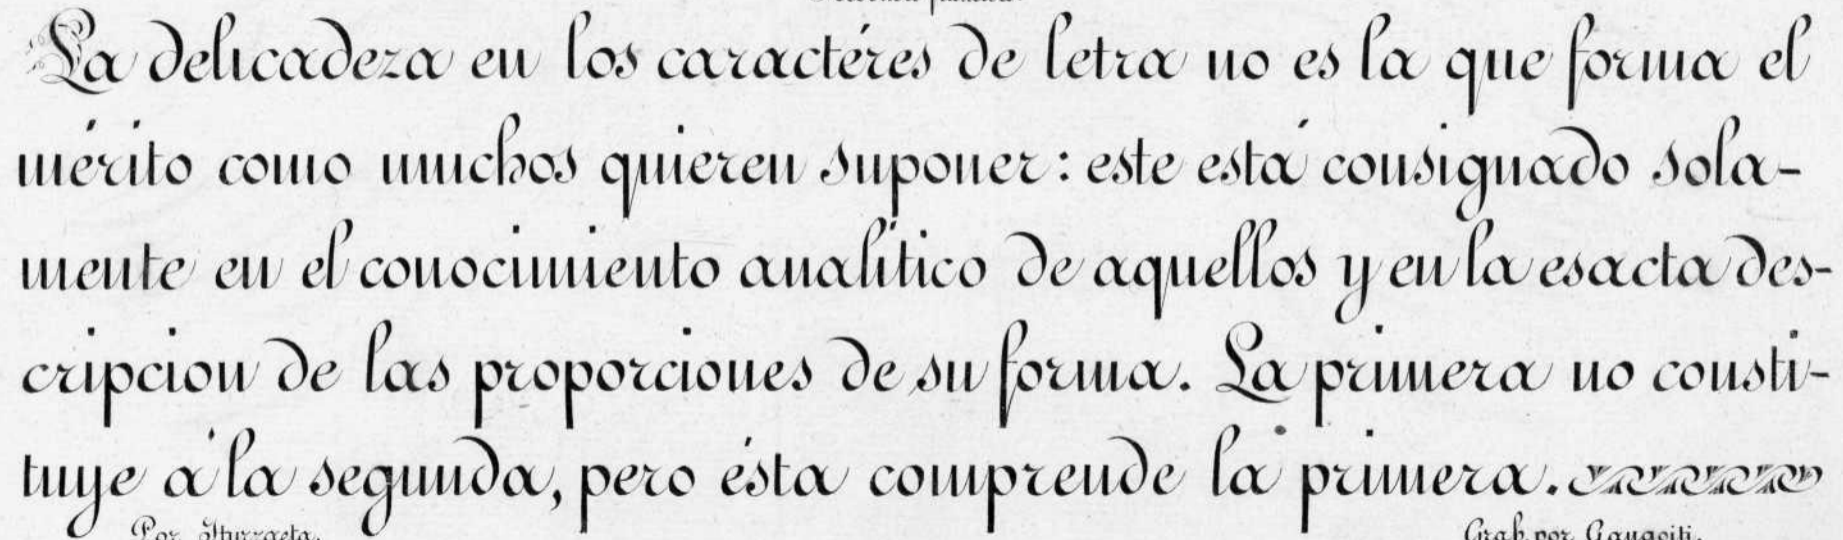 La delicadeza en los caractéres de letra no es la que forma el
mérito como muchos quieren suponer: este está consignado sola-
mente en el conocimiento analítico de aquellos y en la esacta des-
cripcion de las proporciones de su forma. La primera no consti-
tuye á la segunda, pero ésta comprende la primera.
Por Iturzaeta. Grab. por Gangoiti.